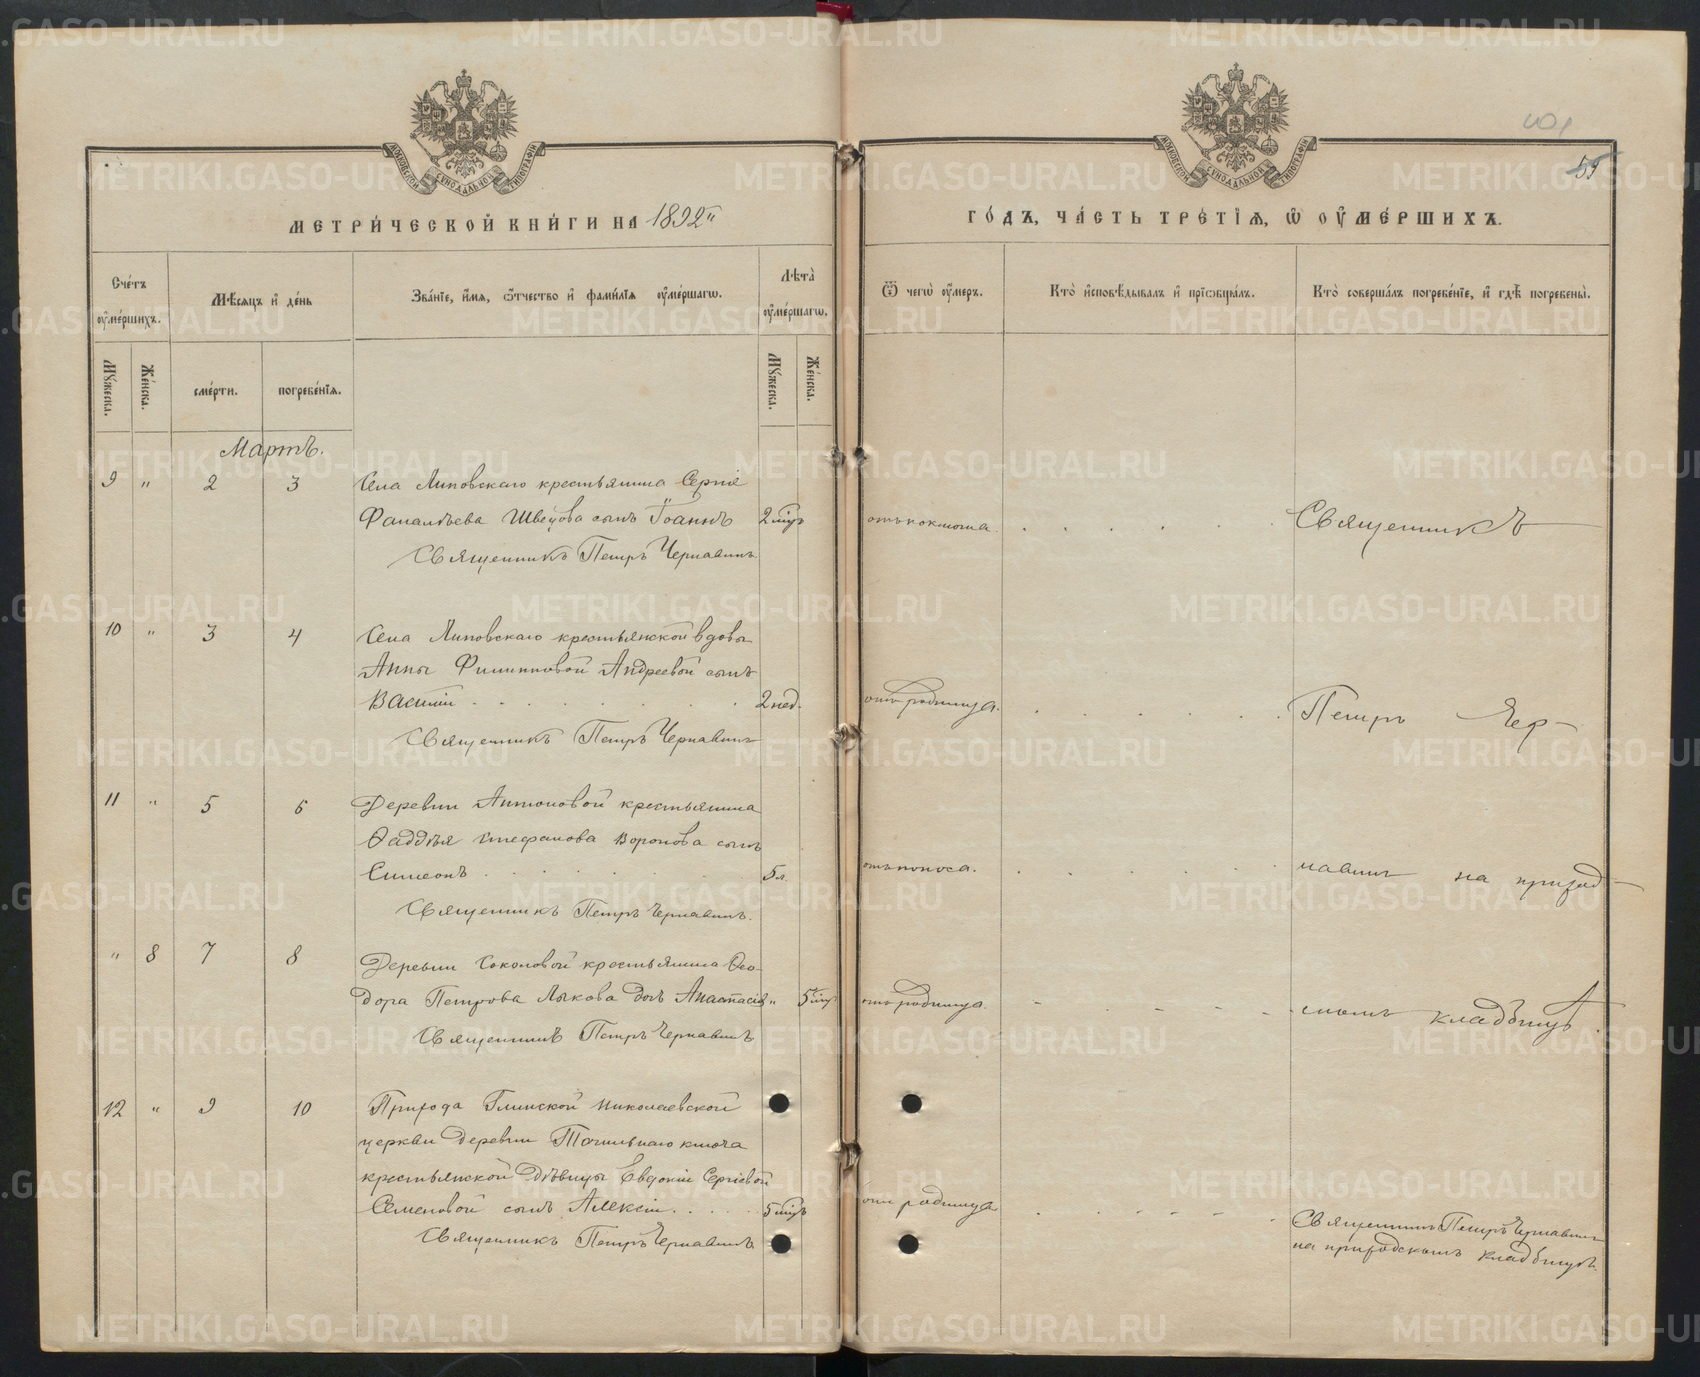 МЕТРИ́ЧЕСКОЙ КНИ́ГИ НА 1892й
Сче́тъ оу҆ме́ршихъ.
Мѣ́сяцъ и҆ де́нь
Зва́нїе, и҆́мя, ѻ҆́тчество и҆ фами́лїя оу҆ме́ршагѡ.
Лѣ́та оу҆ме́ршагѡ.
Мꙋ́жеска.
Же́нска.
сме́рти.
погребе́нїя.
Мꙋ́жеска.
Же́нска.
Мартъ.
9 " 2 3 Села Липовскаго крестьянина Сергіе
Фаналѣева Швецова сынъ Іоаннъ 2 мцъ
Священникъ Петръ Чернавинъ
10 " 3 4 Села Липовскаго крестьянской вдовы
Анны Филипповой Андреевой сынъ
Василій 2 нед.
Священникъ Петръ Чернавинъ
11 " 5 6 Деревни Антоновой крестьянина
Ѳаддѣя Стефанова Воронова сынъ
Симеонъ 5 л.
Священникъ Петръ Чернавинъ.
" 8 7 8 Деревни Соколовой крестьянина Ѳео-
дора Петрова Лыкова дочь Анастасія " 5 мцъ
Священникъ Петръ Чернавинъ
12 " 9 10 Прихода Глинской Николаевской
церкви деревни Точильнаго ключа
крестьянской дѣвицы Евдокіи Сергіевой
Семеновой сынъ Алексій 5 мцъ
Священникъ Петръ Чернавинъ
МОСКОВСКОЙ СѴНОДАЛЬНОЙ ТИПОГРАФІИ
55
ГО́ДЪ, ЧА́СТЬ ТРЕ́ТЇЯ, Ѡ҆ ОУ҆МЕ́РШИХЪ.
Ѿ чегѡ̀ оу҆́меръ.
Кто̀ и҆сповѣ́дывалъ и҆ прїѻбща́лъ.
Кто̀ соверша́лъ погребе́нїе, и҆ гдѣ̀ погребены̀.
отъ коклюша. Священникъ
отъ родимца. Петръ Чер-
отъ поноса. навинъ на приход-
отъ родимца. скомъ кладбищѣ.
отъ родимца
Священникъ Петръ Чернавинъ
на приходскомъ кладбищѣ.
METRIKI.GASO-URAL.RU